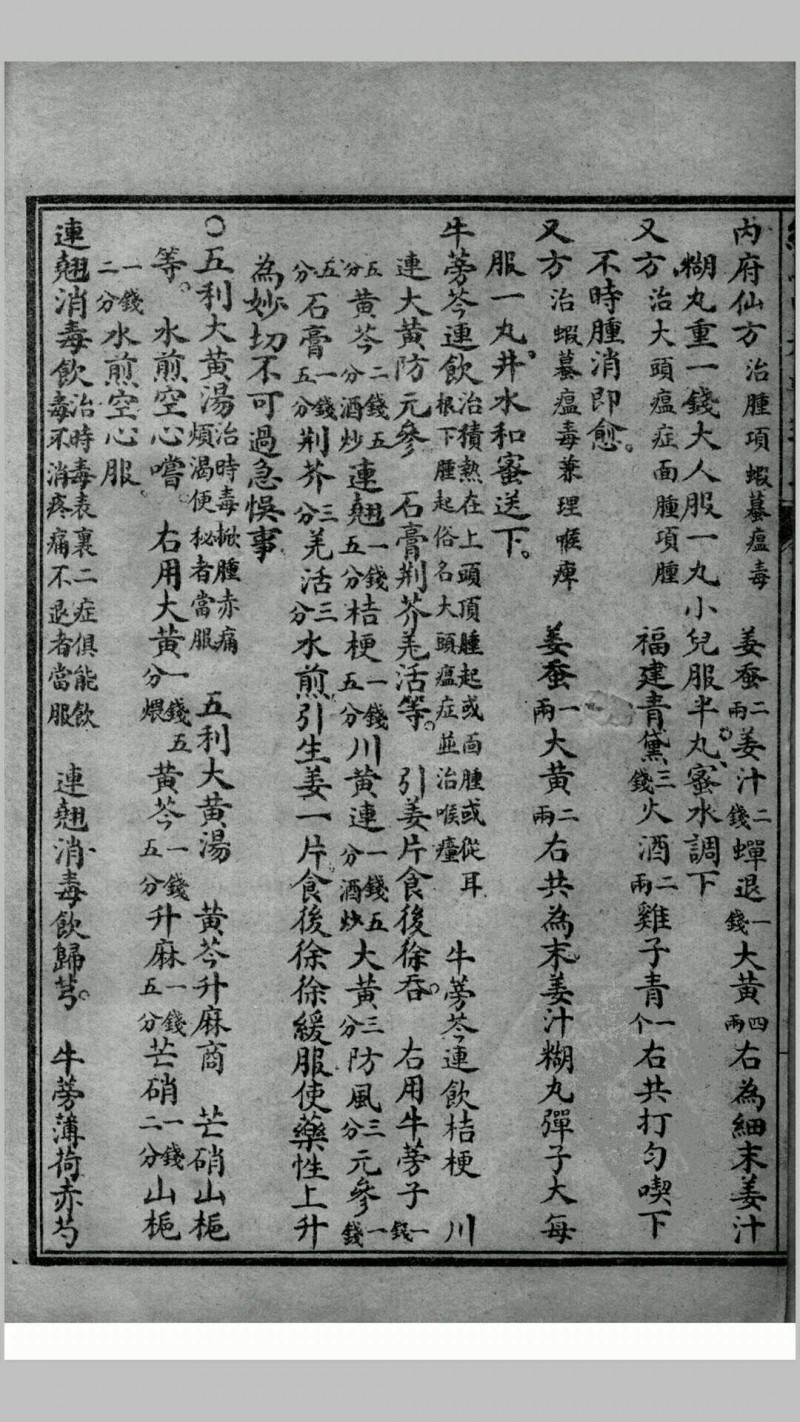 內府仙方治腫項蝦蟇瘟毒 姜蚕二兩姜汁二錢蟬退一錢大黃四兩右為細末姜汁
糊丸重一錢大人服一丸小兒服半丸蜜水調下
又方治大頭瘟症面腫項腫 福建青黛三錢火酒二兩雞子青一个右共打勻喫下
不時腫消即愈。
又方治蝦蟇瘟毒兼理喉痺 姜蚕一兩大黃二兩右共為末姜汁糊丸彈子大每
服一丸井水和蜜送下。
牛蒡芩連飲治積熱在上頭頂腫起或面腫或從耳根下腫起俗名大頭瘟症並治喉癰 牛蒡芩連飲桔梗 川
連大黃防元參 石膏荆芥羌活等。 引姜片食後徐吞。 右用牛蒡子一錢
五分黃芩二錢五分酒炒連翹一錢五分桔梗一錢五分川黃連一錢五分酒炒大黃三分防風三分元參一錢
五分石膏一錢五分荆芥三分羌活三分水煎引生姜一片食後徐徐緩服使藥性上升
為妙切不可過急悞事
○五利大黃湯治時毒焮腫赤痛煩渴便秘者當服 五利大黃湯 黃芩升麻商 芒硝山梔
等。 水煎空心嚐。 右用大黃一錢五分煨黃芩一錢五分升麻一錢五分芒硝一錢二分山梔
一錢二分水煎空心服。
連翹消毒飲治時毒表裏二症俱能飲毒不消疼痛不退者當服 連翹消毒飲歸芎。 牛蒡薄荷赤芍